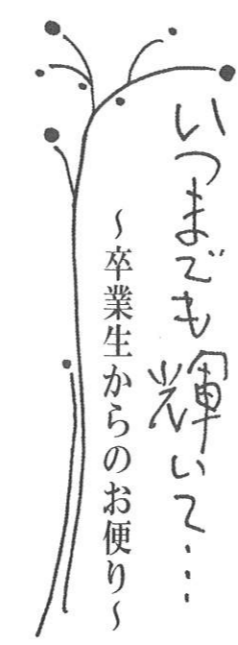 いつまでも輝いて…
～卒業生からのお便り～